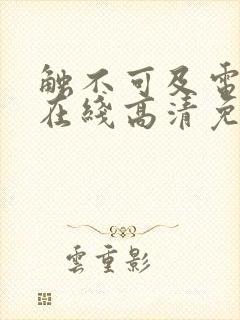 触不可及電
在綫高清免
雲重影